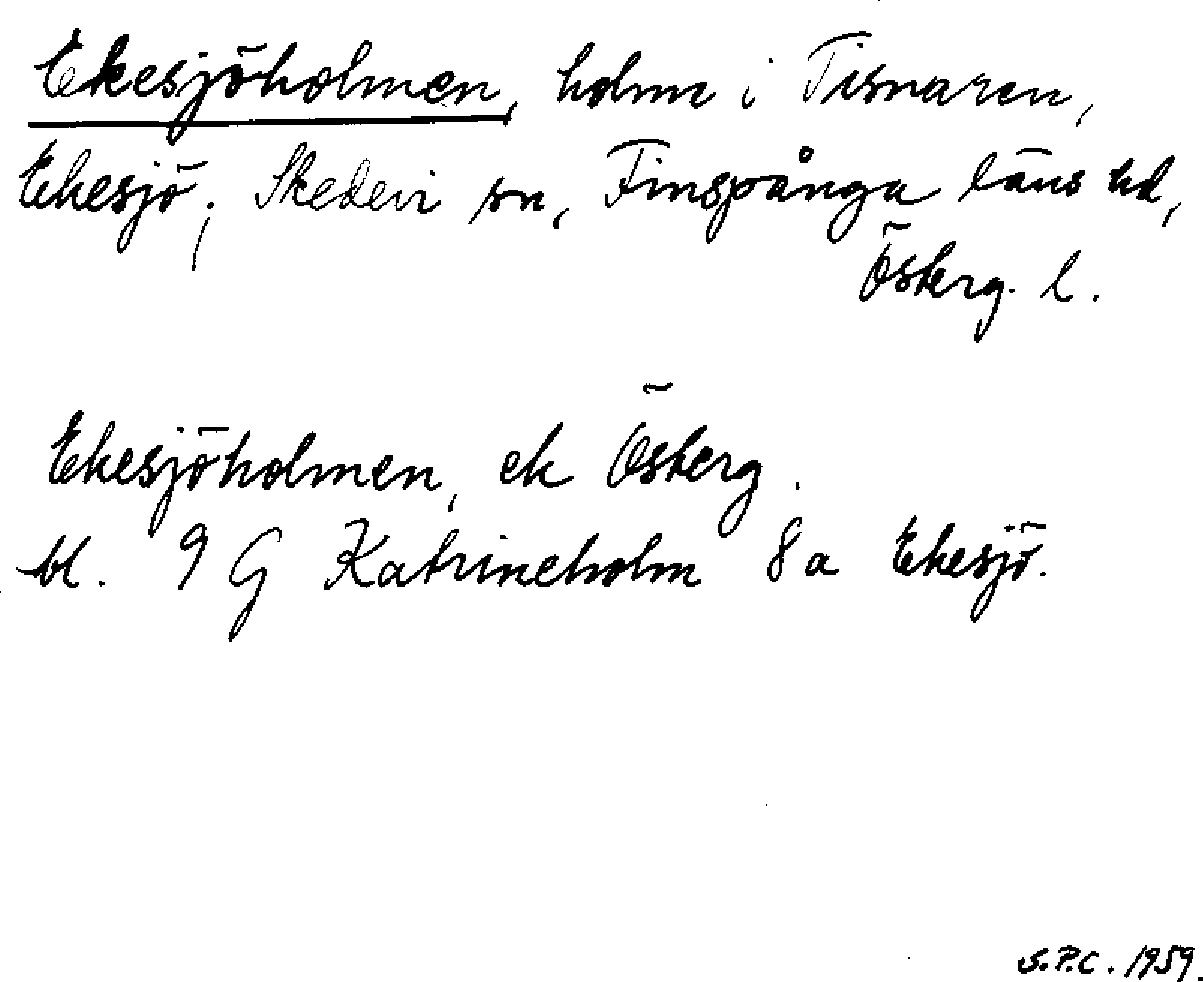 Ekesjöholmen, holm i Tisnaren,
Ekesjö, Skedevi sn, Finspånga läns hd,
Österg. l.
Ekesjöholmen, ek Österg.
bl. 9 G Katrineholm 8 a Ekesjö.
S.P.C. 1959.